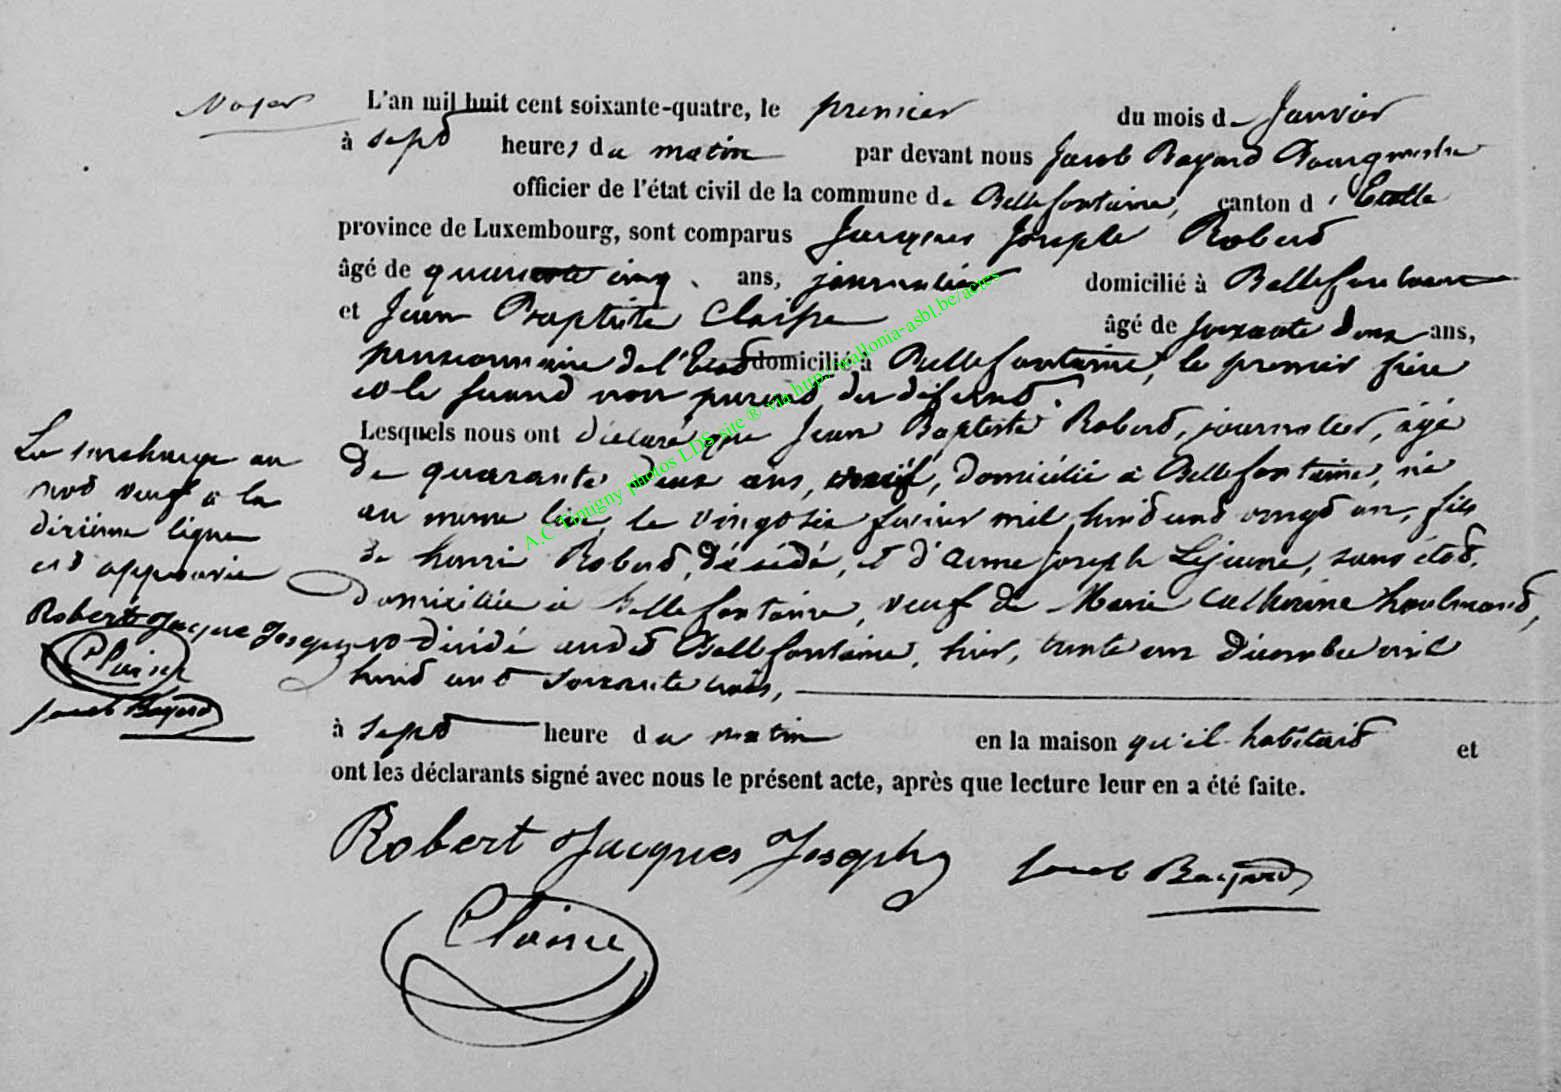 L'an mil huit cent soixante-quatre, le premier du mois de Janvier
à sept heures du matin par devant nous Jacob Bayard Bourgmestre
officier de l'état civil de la commune de Bellefontaine, canton d'Etalle
province de Luxembourg, sont comparus Jacques Joseph Robert
âgé de quarante cinq ans, journalier domicilié à Bellefontaine
et Jean Baptiste Claisse âgé de soixante deux ans,
pensionnaire de l'Etat domicilié à Bellefontaine, le premier frère
et le second non parent du défunt.
Lesquels nous ont déclaré que Jean Baptiste Robert, journalier, âgé
de quarante deux ans, veuf, domicilié à Bellefontaine, né
au même lieu, le vingt six février mil huit cent vingt un, fils
de henri Robert, décédé, et d'anne joseph Lejeune, sans état,
domiciliée à bellefontaine, veuf de Marie Catherine
est décédé audit Bellefontaine, hier, trente un décembre mil
huit cent soixante trois,
à sept heure du matin en la maison qu'il habitait et
ont les déclarants signé avec nous le présent acte, après que lecture leur en a été faite.
Robert Jacques Joseph Jacob Bayard
Claisse
La surcharge au
mot veuf à la
dixième ligne
est approuvée
Robert Jacque Joseph
Claisse
Jacob Bayard
A.C Tintigny photos LDS site ® via http://wallonia-asbl.be/actes